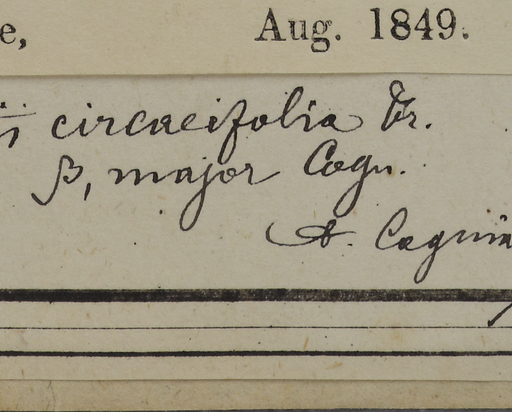 e, Aug. 1849.
circaeifolia Tr.
β, major Cogn.
A. Cognia